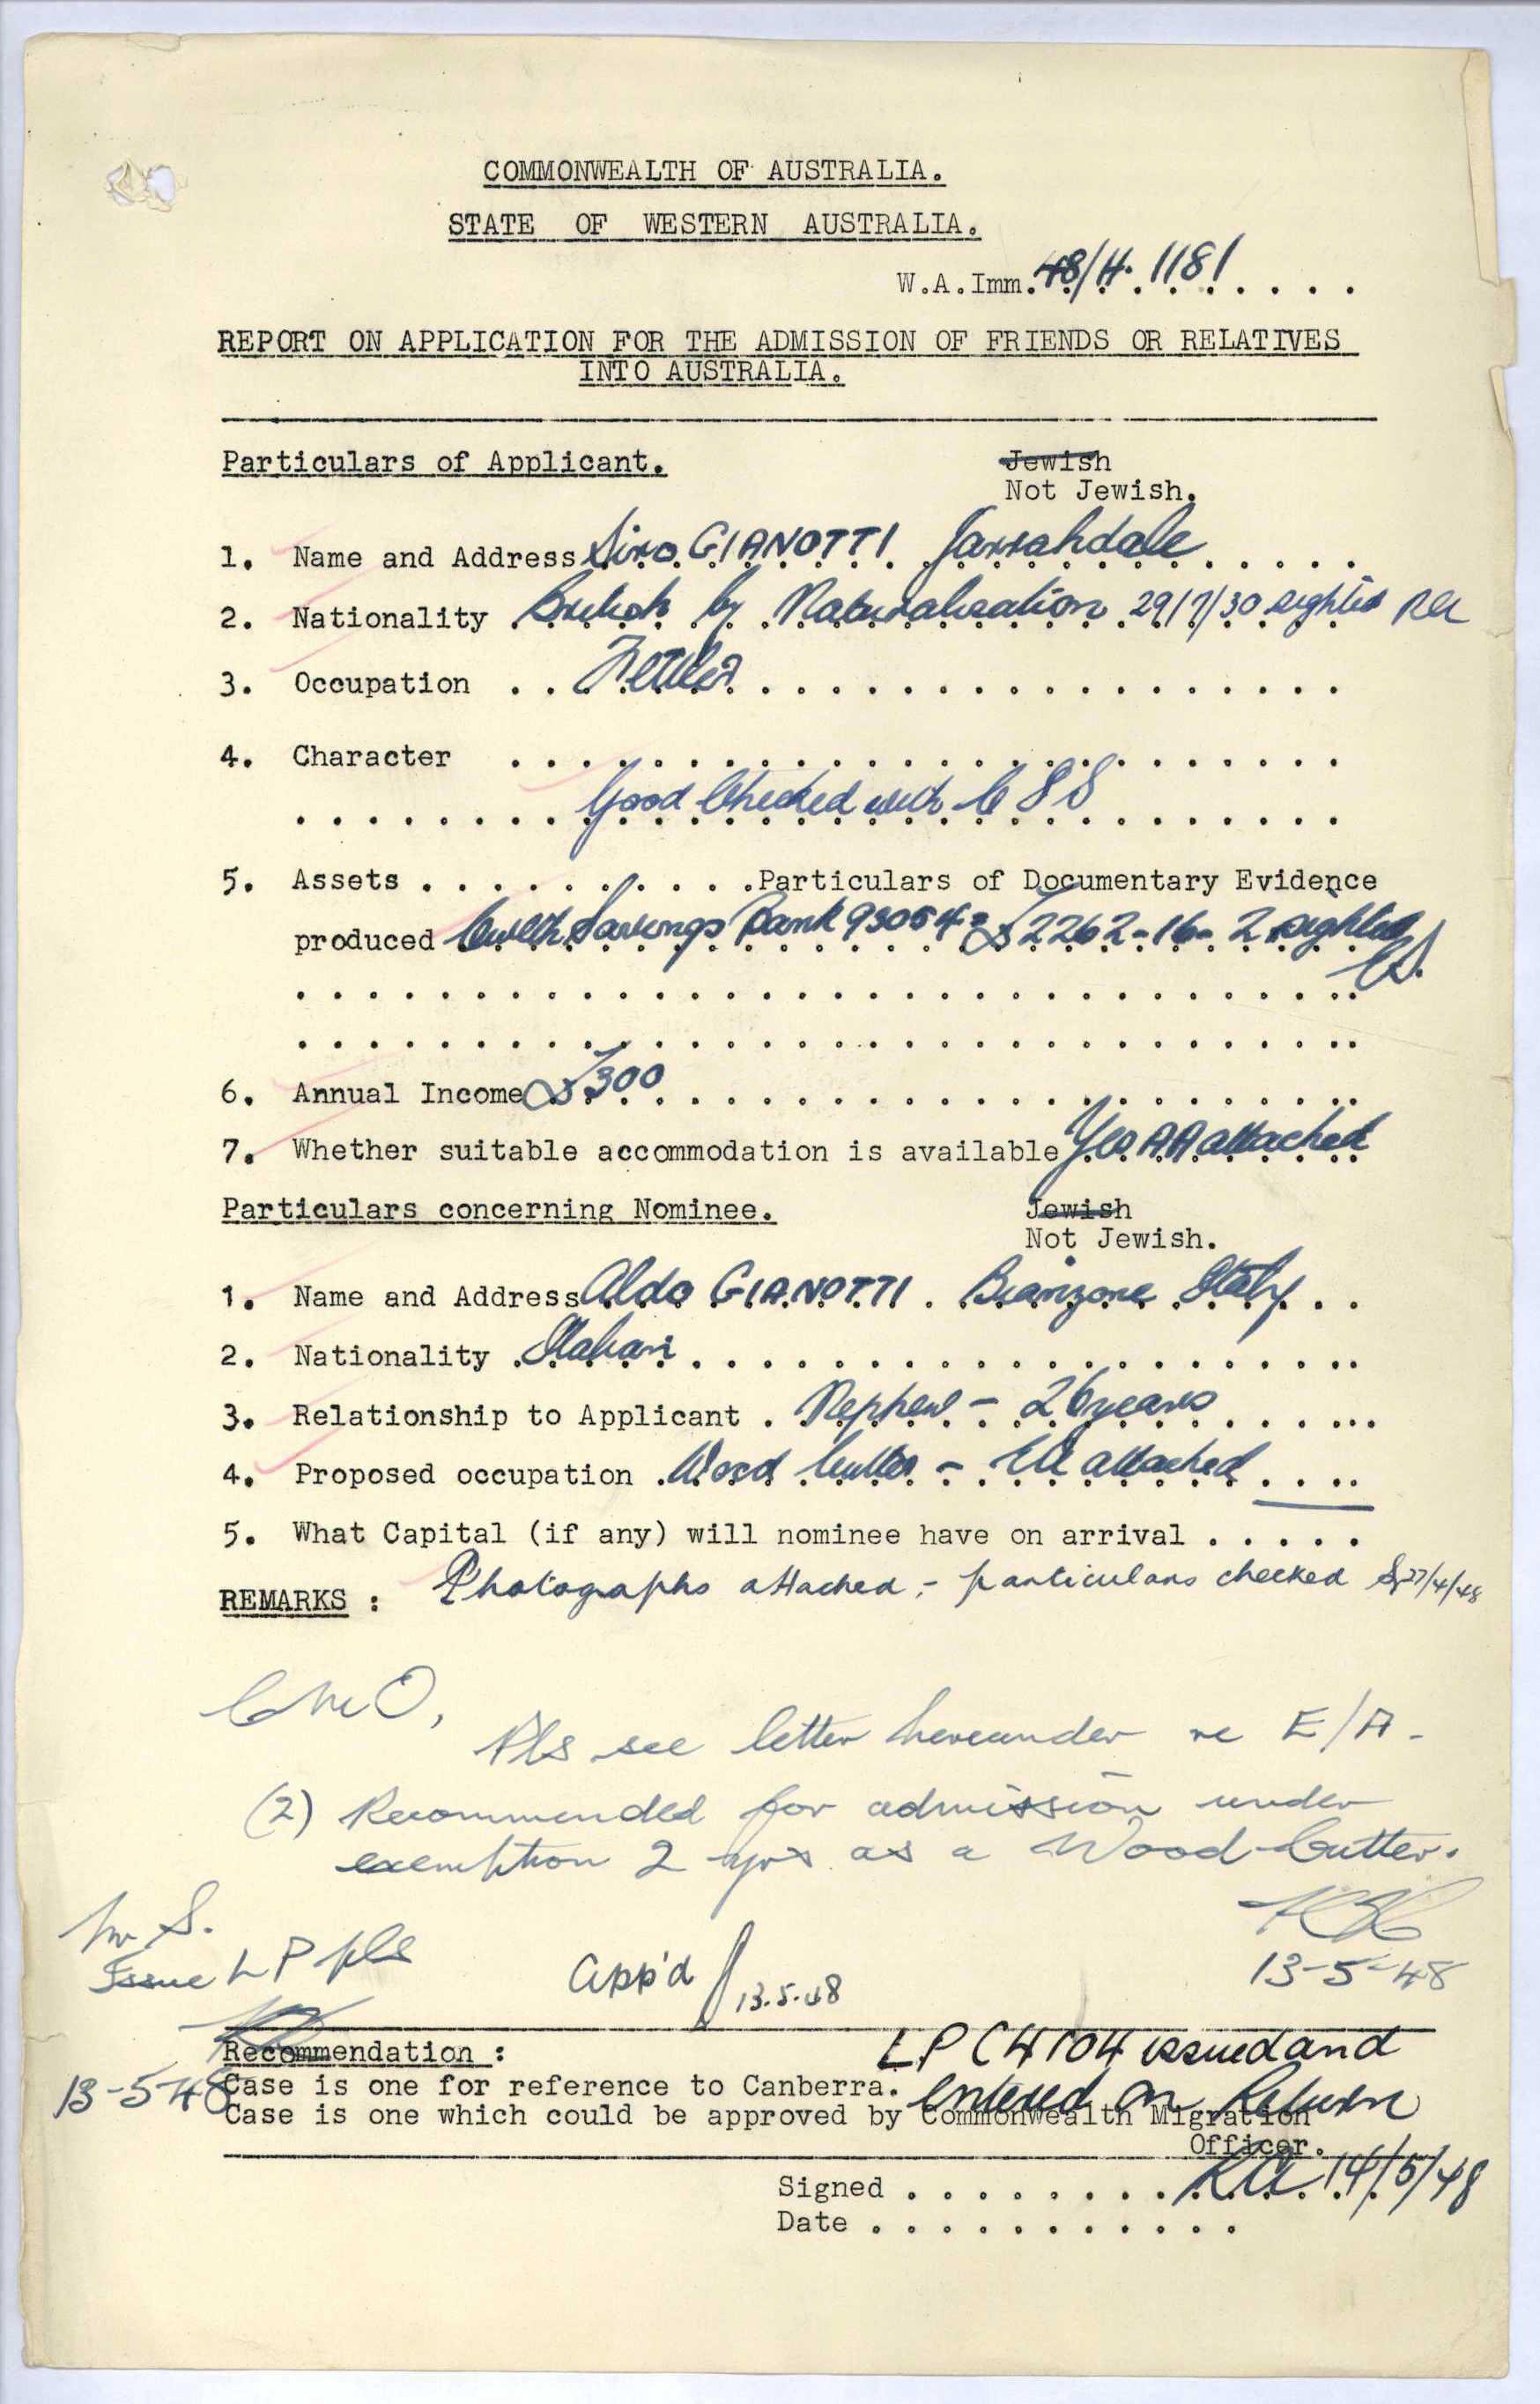 COMMONWEALTH OF AUSTRALIA.
STATE OF WESTERN AUSTRALIA.
W.A.Imm. 48/4. 1181
REPORT ON APPLICATION FOR THE ADMISSION OF FRIENDS OR RELATIVES
INTO AUSTRALIA.
Particulars of Applicant. Jewish
Not Jewish.
1. Name and Address Siro GIANOTTI Jarrahdale
2. Nationality British by Naturalisation 29/7/30 sighted
3. Occupation Fettler
4. Character
Good Checked with
5. Assets Particulars of Documentary Evidence
produced Cwlth Savings Bank 93054 £2262-16-2 sighted
6. Annual Income £300
7. Whether suitable accommodation is available Yes AA attached
Particulars concerning Nominee. Jewish
Not Jewish.
1. Name and Address Aldo GIANOTTI Bianzone Italy
2. Nationality Italian
3. Relationship to Applicant Nephew - 26 years
4. Proposed occupation Wood Cutter - EA attached
5. What Capital (if any) will nominee have on arrival
REMARKS : Photographs attached - particulars checked 27/4/48
CMO,
Pls see letter hereunder re E/A -
(2) Recommended for admission under
exemption 2 yrs as a Wood-Cutter.
Mr S.
Issue LP pls
App'd 13.5.48
13-5-48
Recommendation : LP C4104 issued and
13-5-48 Case is one for reference to Canberra. entered on Return
Case is one which could be approved by Commonwealth Migration
Officer.
Signed 14/5/48
Date